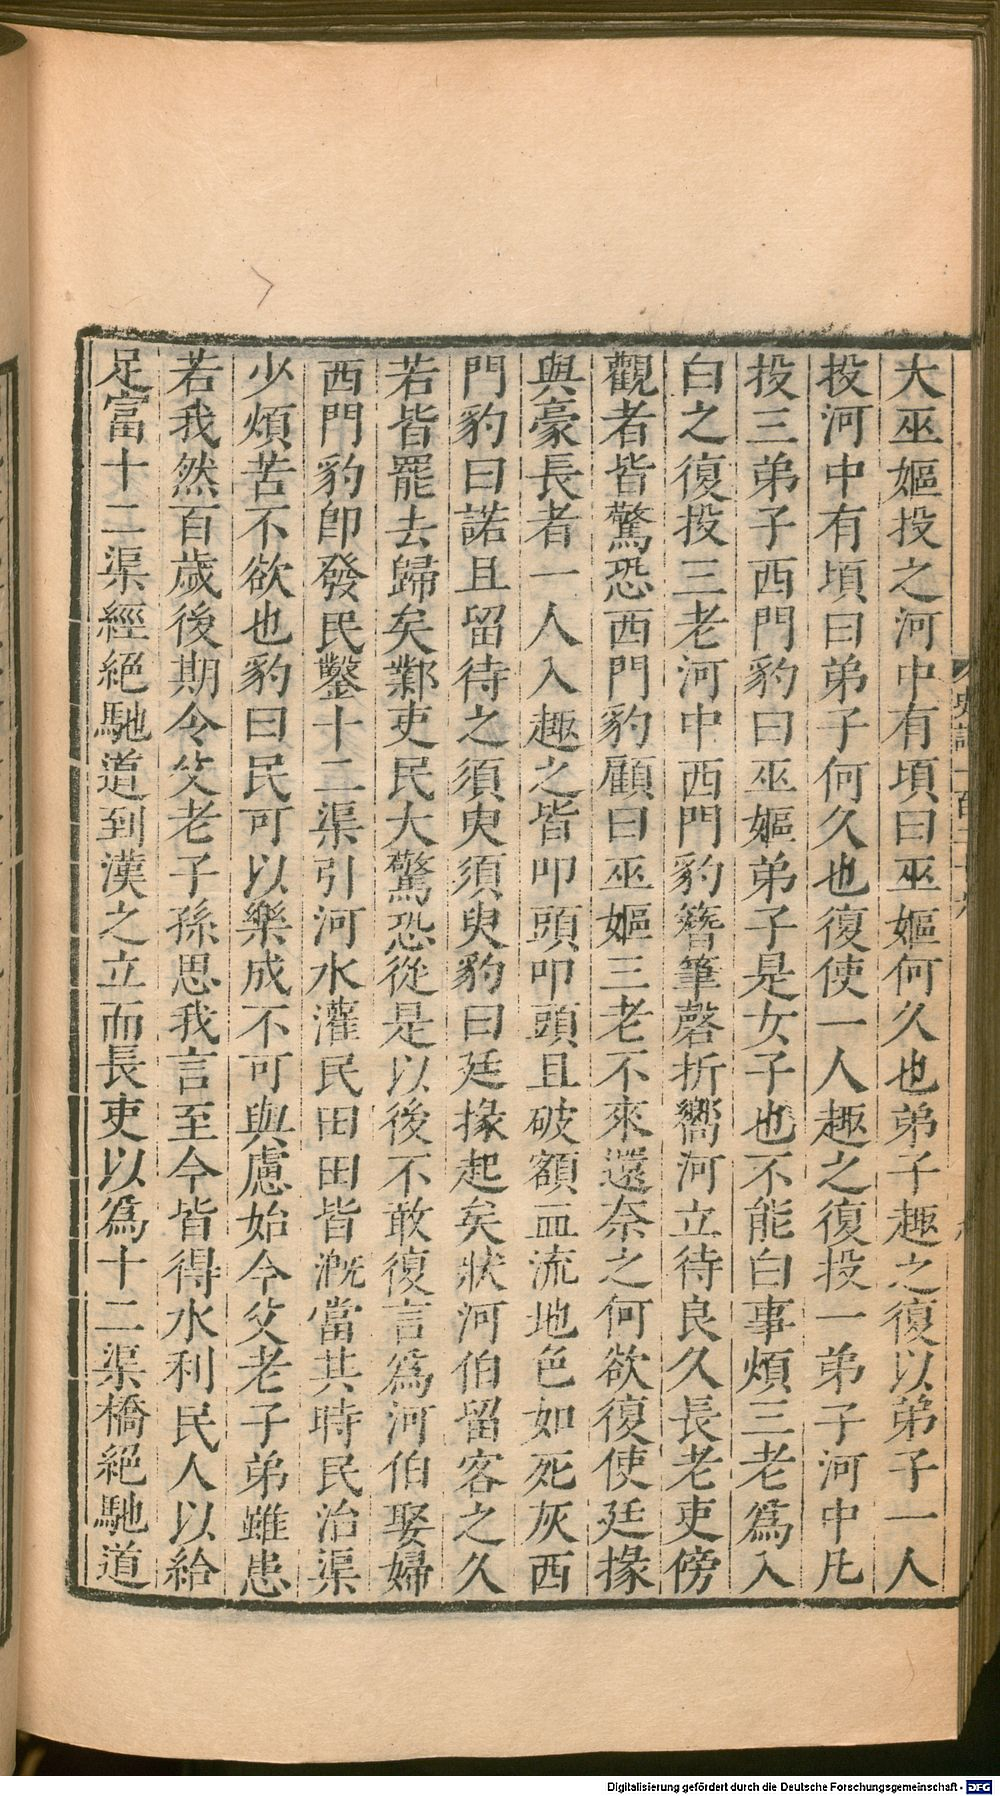 大巫嫗投之河中有頃曰巫嫗何久也弟子趣之復以弟子一人
投河中有頃曰弟子何久也復使一人趣之復投一弟子河中凡
投三弟子西門豹曰巫嫗弟子是女子也不能白事煩三老爲入
白之復投三老河中西門豹簪筆磬折嚮河立待良久長老吏傍
觀者皆驚恐西門豹顧曰巫嫗三老不來還奈之何欲復使廷掾
與豪長者一人入趣之皆叩頭叩頭且破額血流地色如死灰西
門豹曰諾且留待之須臾須臾豹曰廷掾起矣狀河伯留客之久
若皆罷去歸矣鄴吏民大驚恐從是以後不敢復言爲河伯娶婦
西門豹卽發民鑿十二渠引河水灌民田田皆溉當其時民治渠
少煩苦不欲也豹曰民可以樂成不可與慮始今父老子弟雖患
若我然百歲後期令父老子孫思我言至今皆得水利民人以給
足富十二渠經絕馳道到漢之立而長吏以爲十二渠橋絕馳道
Digitalisierung gefördert durch die Deutsche Forschungsgemeinschaft - DFG